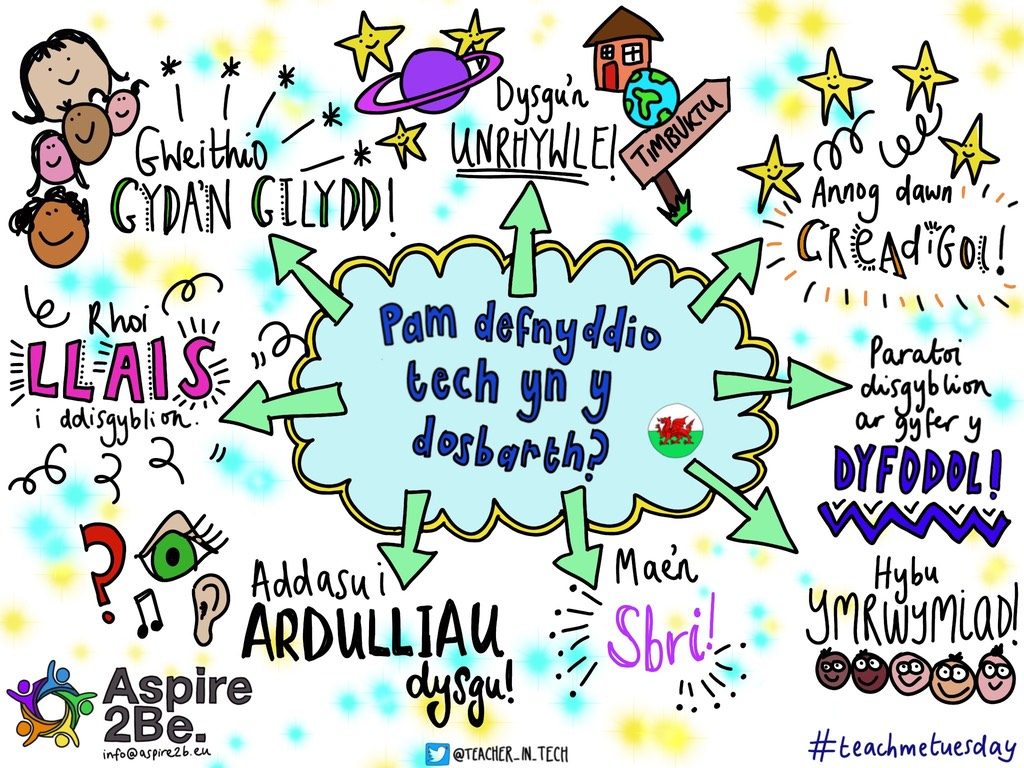 Gweithio
GYDA'N GILYDD!
Dysgu'n
UNRHYWLE!
TIMBUKTU
Annog dawn
CREADIGOL!
Rhoi
LLAIS
i ddisgyblion.
Pam defnyddio
tech yn y
dosbarth?
Paratoi
disgyblion
ar gyfer y
DYFODOL!
Addasu i
ARDULLIAU
dysgu!
Mae'n
Sbri!
Hybu
YMRWYMIAD!
Aspire
2Be.
info@aspire2b.eu
@TEACHER_IN_TECH
#teachmetuesday